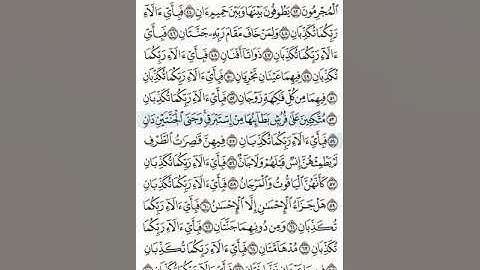 ٱلْمُجْرِمُونَ ٤٣ يَطُوفُونَ بَيْنَهَا وَبَيْنَ حَمِيمٍ ءَانٍ ٤٤ فَبِأَىِّ ءَالَآءِ
رَبِّكُمَا تُكَذِّبَانِ ٤٥ وَلِمَنْ خَافَ مَقَامَ رَبِّهِۦ جَنَّتَانِ ٤٦ فَبِأَىِّ
ءَالَآءِ رَبِّكُمَا تُكَذِّبَانِ ٤٧ ذَوَاتَآ أَفْنَانٍ ٤٨ فَبِأَىِّ ءَالَآءِ رَبِّكُمَا
تُكَذِّبَانِ ٤٩ فِيهِمَا عَيْنَانِ تَجْرِيَانِ ٥٠ فَبِأَىِّ ءَالَآءِ رَبِّكُمَا تُكَذِّبَانِ
٥١ فِيهِمَا مِن كُلِّ فَٰكِهَةٍ زَوْجَانِ ٥٢ فَبِأَىِّ ءَالَآءِ رَبِّكُمَا تُكَذِّبَانِ
٥٣ مُتَّكِـِٔينَ عَلَىٰ فُرُشٍۭ بَطَآئِنُهَا مِنْ إِسْتَبْرَقٍ ۚ وَجَنَى ٱلْجَنَّتَيْنِ دَانٍ
٥٤ فَبِأَىِّ ءَالَآءِ رَبِّكُمَا تُكَذِّبَانِ ٥٥ فِيهِنَّ قَٰصِرَٰتُ ٱلطَّرْفِ
لَمْ يَطْمِثْهُنَّ إِنسٌ قَبْلَهُمْ وَلَا جَآنٌّ ٥٦ فَبِأَىِّ ءَالَآءِ رَبِّكُمَا تُكَذِّبَانِ
٥٧ كَأَنَّهُنَّ ٱلْيَاقُوتُ وَٱلْمَرْجَانُ ٥٨ فَبِأَىِّ ءَالَآءِ رَبِّكُمَا تُكَذِّبَانِ
٥٩ هَلْ جَزَآءُ ٱلْإِحْسَٰنِ إِلَّا ٱلْإِحْسَٰنُ ٦٠ فَبِأَىِّ ءَالَآءِ رَبِّكُمَا
تُكَذِّبَانِ ٦١ وَمِن دُونِهِمَا جَنَّتَانِ ٦٢ فَبِأَىِّ ءَالَآءِ رَبِّكُمَا
تُكَذِّبَانِ ٦٣ مُدْهَآمَّتَانِ ٦٤ فَبِأَىِّ ءَالَآءِ رَبِّكُمَا تُكَذِّبَانِ